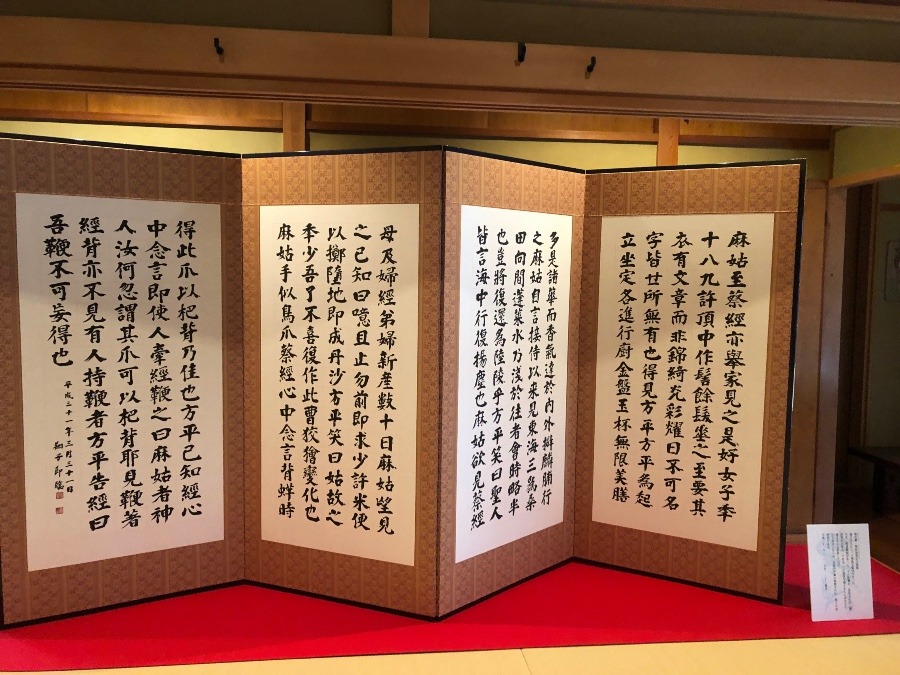 麻姑至蔡經亦舉家見之是好女子年
十八九許頂中作髻餘髮垂之至要其
衣有文章而非錦綺光彩耀日不可名
字皆世所無有也得見方平方平為起
立坐定各進行廚金盤玉杯無限美膳
多是諸華而香氣達於內外擗麟脯行
之麻姑自言接侍以來見東海三為桑
田向間蓬萊水乃淺於往者會時略半
也豈將復還為陸陵乎方平笑曰聖人
皆言海中行復揚塵也麻姑欲見蔡經
母及婦經弟婦新產數十日麻姑望見
之已知曰噫且止勿前即求少許米便
以擲墮地即成丹沙方平笑曰姑故之
年少吾了不喜復作此曹狡獪變化也
麻姑手似鳥爪蔡經心中念言背蛘時
得此爪以杷背乃佳也方平已知經心
中念言即使人牽經鞭之曰麻姑者神
人汝何忽謂其爪可以杷背耶見鞭著
經背亦不見有人持鞭者方平告經曰
吾鞭不可妄得也
平成二十一年三月三十一日
臨